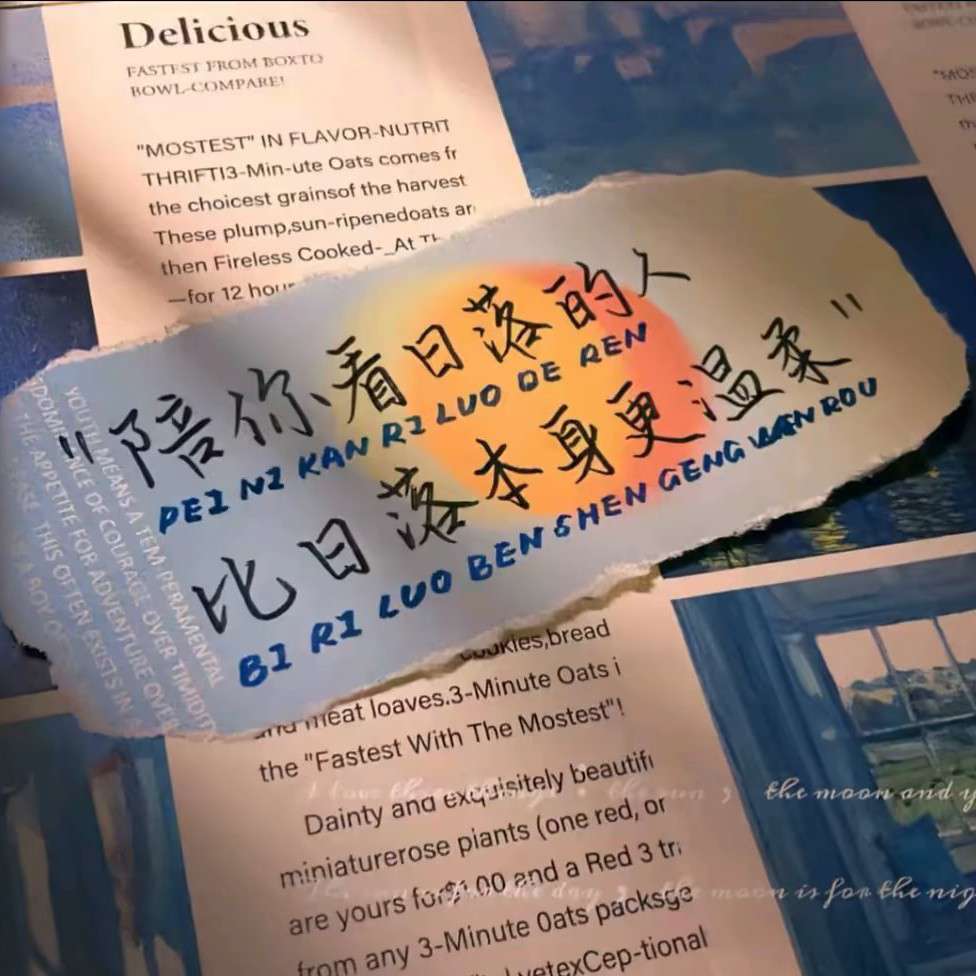 Delicious
FASTEST FROM BOXTO
BOWL-COMPARE!
"MOSTEST" IN FLAVOR-NUTRIT
THRIFTI3-Min-ute Oats comes fr
the choicest grainsof the harvest
These plump,sun-ripenedoats ar
then Fireless Cooked-_At Th
—for 12 hour
"陪你看日落的人
PEI NI KAN RI LUO DE REN
比日落本身更温柔"
BI RI LUO BEN SHEN GENG WEN ROU
YOUTH MEANS A TEM PERAMENTAL
DOMINENCE OF COURAGE OVER TIMIDIT
THE APPETITE FOR ADVENTURE OVER
EASE THIS OFTEN EXISTS IN
A BOY OF
cookies,bread
and meat loaves.3-Minute Oats i
the "Fastest With The Mostest"!
Dainty and exquisitely beautifu
miniaturerose piants (one red, or
are yours for$1.00 and a Red 3 tr
from any 3-Minute 0ats packsge
vetexCep-tional
I love three things the sun ; the moon and y
for the day ; the moon is for the nig
"MOS
THE
th